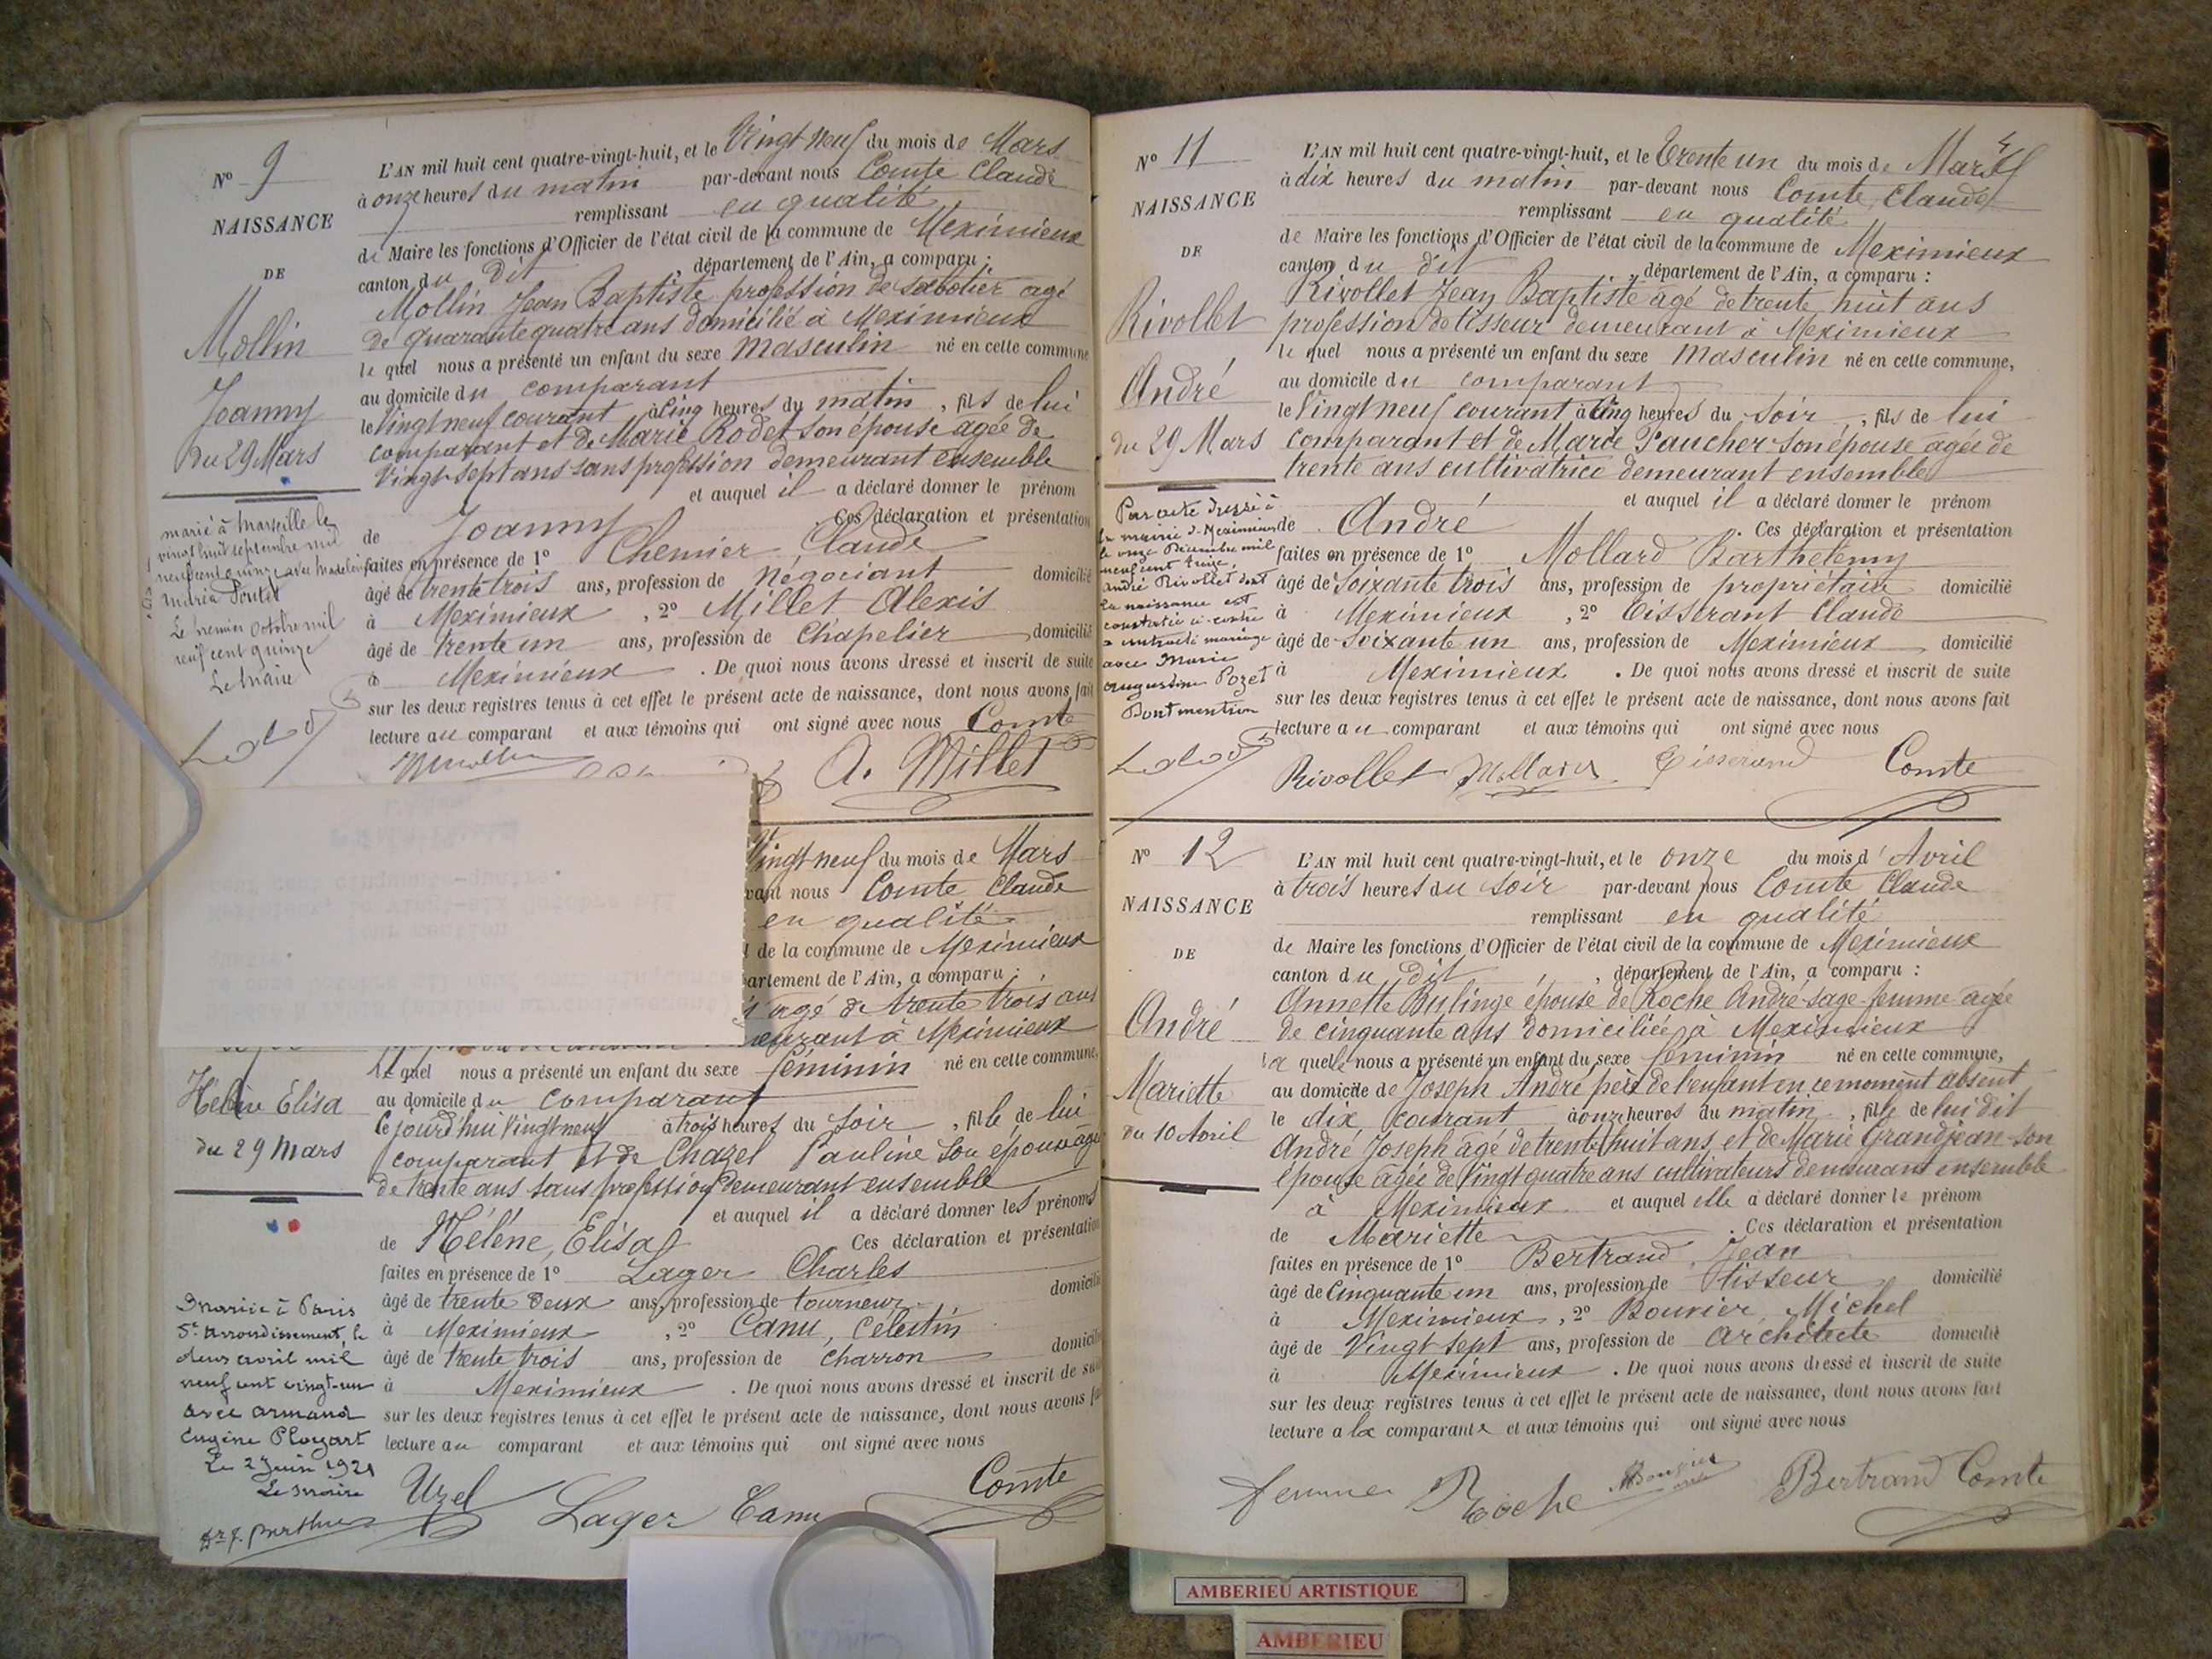 N° 9
NAISSANCE
DE
Mollin
Joanny
Du 29 Mars
marié à Marseille le
vingt huit septembre mil
neuf cent quinze avec Madeleine
Maria Poutet
Le premier octobre mil
neuf cent quinze
Le Maire
L'AN mil huit cent quatre-vingt-huit, et le Vingt neuf du mois de Mars
à onze heures du matin par-devant nous Comte Claude
remplissant en qualité
de Maire les fonctions d'Officier de l'état civil de la commune de Meximieux
canton du dit, département de l'Ain, a comparu :
Mollin Jean Baptiste profession de sabotier agé
de quarante quatre ans domicilié à Meximieux
le quel nous a présenté un enfant du sexe masculin né en cette commune
au domicile du comparant
le Vingt neuf courant à cinq heures du matin, fils de lui
comparant et de Marie Rodet son épouse agée de
Vingt-sept ans sans profession demeurant ensemble
et auquel il a déclaré donner le prénom
de Joanny Ces déclaration et présentation
faites en présence de 1° Chenier Claude
âgé de trente trois ans, profession de négociant domicilié
à Meximieux, 2° Millet Alexis
âgé de trente un ans, profession de Chapelier domicilié
à Meximieux. De quoi nous avons dressé et inscrit de suite
sur les deux registres tenus à cet effet le présent acte de naissance, dont nous avons fait
lecture au comparant et aux témoins qui ont signé avec nous Comte
A. Millet
Vingt neuf du mois de Mars
vant nous Comte Claude
en qualité
l de la commune de Meximieux
partement de l'Ain, a comparu :
agé de trente trois ans
eurant à Meximieux
Hélène Elisa
du 29 Mars
le quel nous a présenté un enfant du sexe féminin né en cette commune,
au domicile du comparant
le jourd'hui Vingt neuf à trois heures du soir, fille de lui
comparant et de Chazel Pauline son épouse agée
de trente ans sans profession demeurant ensemble
et auquel il a déclaré donner les prénoms
de Hélène, Elisa Ces déclaration et présentation
faites en présence de 1° Lager Charles
âgé de trente deux ans, profession de tourneur domicilié
à Meximieux, 2° Canu, Célestin
âgé de trente trois ans, profession de charron domicilié
à Meximieux. De quoi nous avons dressé et inscrit de suite
sur les deux registres tenus à cet effet le présent acte de naissance, dont nous avons fa
lecture au comparant et aux témoins qui ont signé avec nous
Mariée à Paris
5e arrondissement, le
deux avril mil
neuf cent vingt-un
avec Armand
Eugène Ployart
Le 2 Juin 1921
Le Maire
Uzel Lager Canu Comte
N° 11
NAISSANCE
DE
Rivollet
André
du 29 Mars
Par acte dressé à
la mairie de Meximieux
le onze Décembre mil
neuf cent treize,
André Rivollet dont
la naissance est
constatée ci-contre
a contracté mariage
avec Marie
Augustine Pozet
Dont mention
L'AN mil huit cent quatre-vingt-huit, et le trente un du mois de Mars
à dix heures du matin par-devant nous Comte Claude
remplissant en qualité
de Maire les fonctions d'Officier de l'état civil de la commune de Meximieux
canton du dit, département de l'Ain, a comparu :
Rivollet Jean Baptiste agé de trente huit ans
profession de tisseur demeurant à Meximieux
le quel nous a présenté un enfant du sexe masculin né en cette commune,
au domicile du comparant
le Vingt neuf courant à cinq heures du soir, fils de lui
comparant et de Marie Paucher son épouse agée de
trente ans cultivatrice demeurant ensemble
et auquel il a déclaré donner le prénom
de André. Ces déclaration et présentation
faites en présence de 1° Mollard Barthélemy
âgé de soixante trois ans, profession de propriétaire domicilié
à Meximieux, 2° Tisserant Claude
âgé de soixante un ans, profession de Meximieux domicilié
à Meximieux. De quoi nous avons dressé et inscrit de suite
sur les deux registres tenus à cet effet le présent acte de naissance, dont nous avons fait
lecture au comparant et aux témoins qui ont signé avec nous
Rivollet Mollard Tisserand Comte
N° 12
NAISSANCE
DE
André
Mariette
du 10 Avril
L'AN mil huit cent quatre-vingt-huit, et le onze du mois d'Avril
à trois heures du soir par-devant nous Comte Claude
remplissant en qualité
de Maire les fonctions d'Officier de l'état civil de la commune de Meximieux
canton du dit, département de l'Ain, a comparu :
Annette Bulinge épouse de Roche André sage-femme agée
de cinquante ans domiciliée à Meximieux
la quelle nous a présenté un enfant du sexe féminin né en cette commune,
au domicile de Joseph André père de l'enfant en ce moment absent
le dix courant à onze heures du matin, fille de lui dit
André Joseph agé de trente huit ans et de Marie Grandjean son
épouse agée de Vingt quatre ans cultivateurs demeurant ensemble
à Meximieux et auquel elle a déclaré donner le prénom
de Mariette. Ces déclaration et présentation
faites en présence de 1° Bertrand Jean
âgé de Cinquante un ans, profession de tisseur domicilié
à Meximieux, 2° Bouvier Michel
âgé de Vingt sept ans, profession de architecte domicilié
à Meximieux. De quoi nous avons dressé et inscrit de suite
sur les deux registres tenus à cet effet le présent acte de naissance, dont nous avons fait
lecture a la comparante et aux témoins qui ont signé avec nous
femme Roche Bouvier Bertrand Comte
AMBERIEU ARTISTIQUE
AMBERIEU